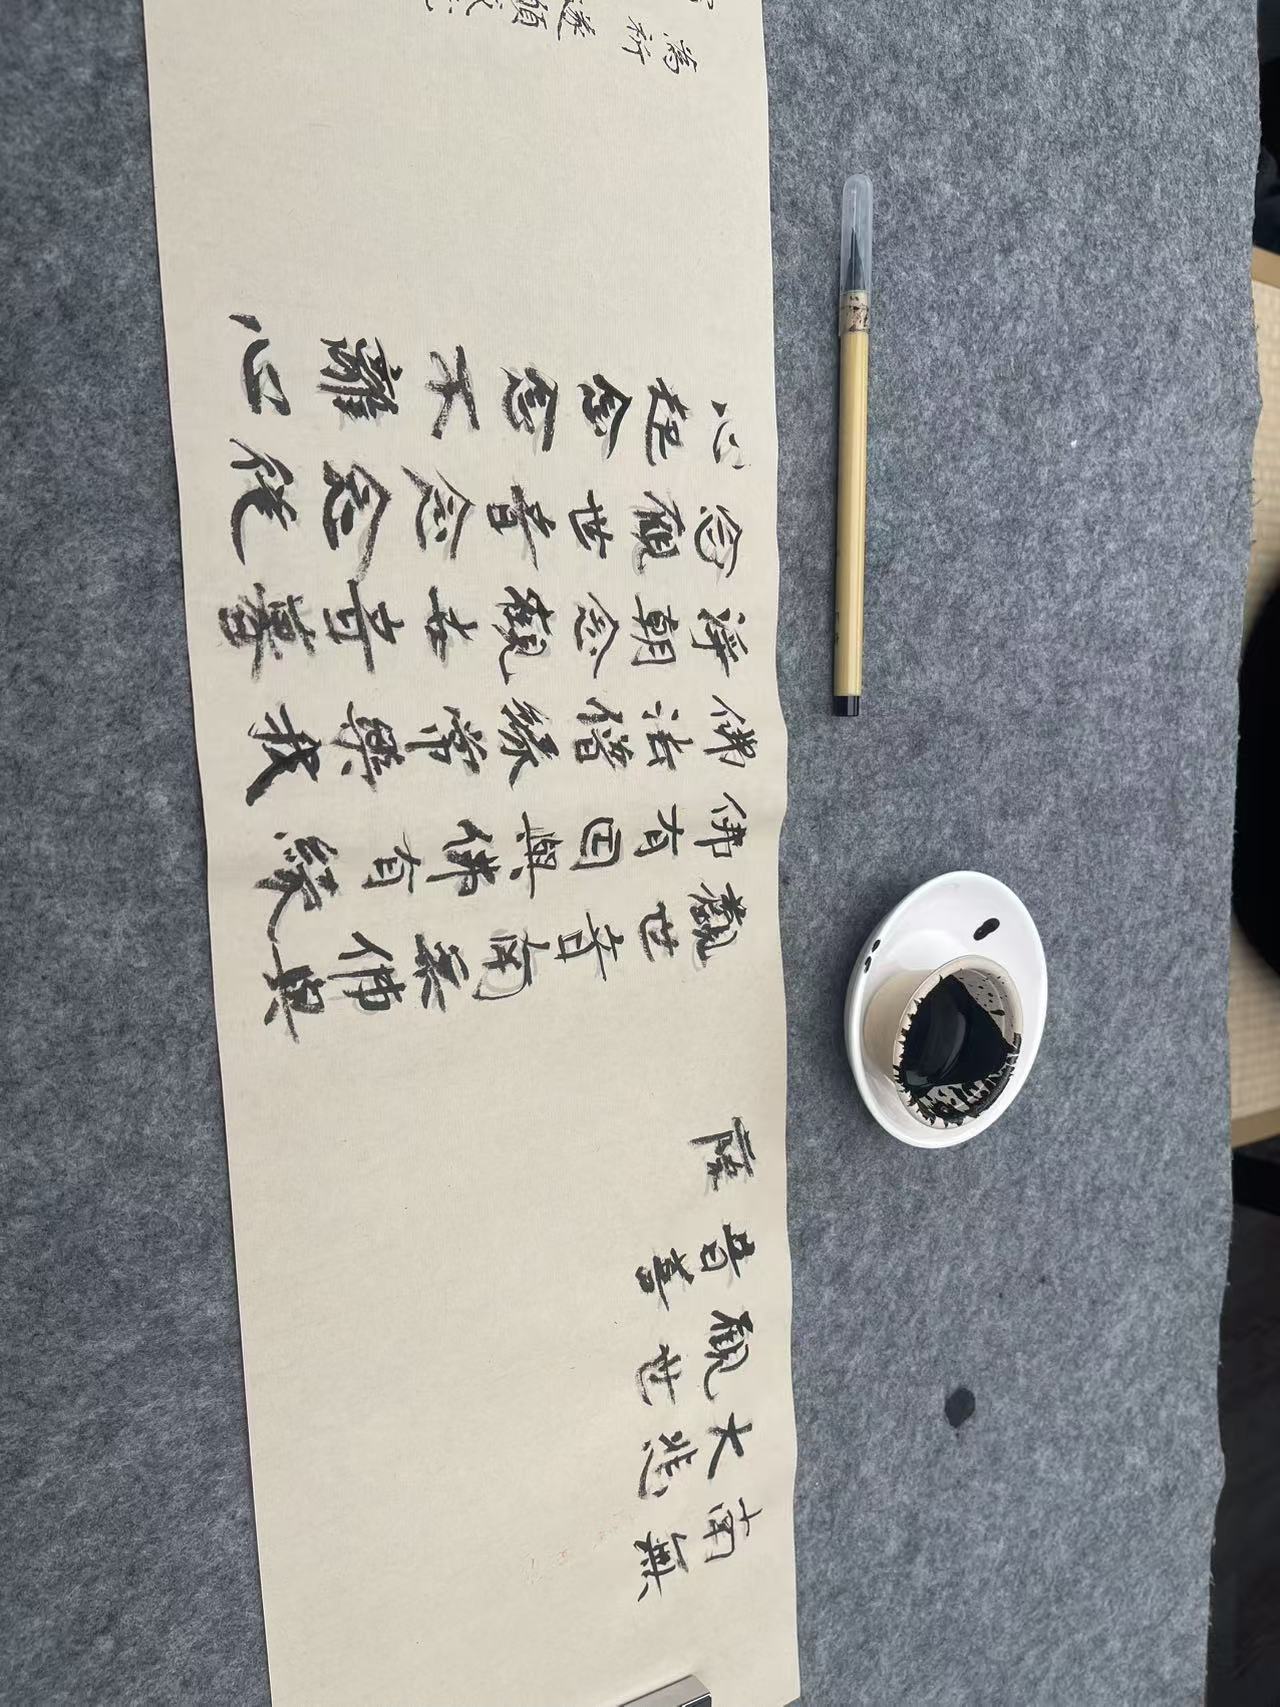 南無
大悲
觀世
音菩
薩
觀世音南無佛與
佛有因與佛有緣
佛法僧緣常樂我
淨朝念觀世音暮
念觀世音念念從
心起念念不離心
為祈